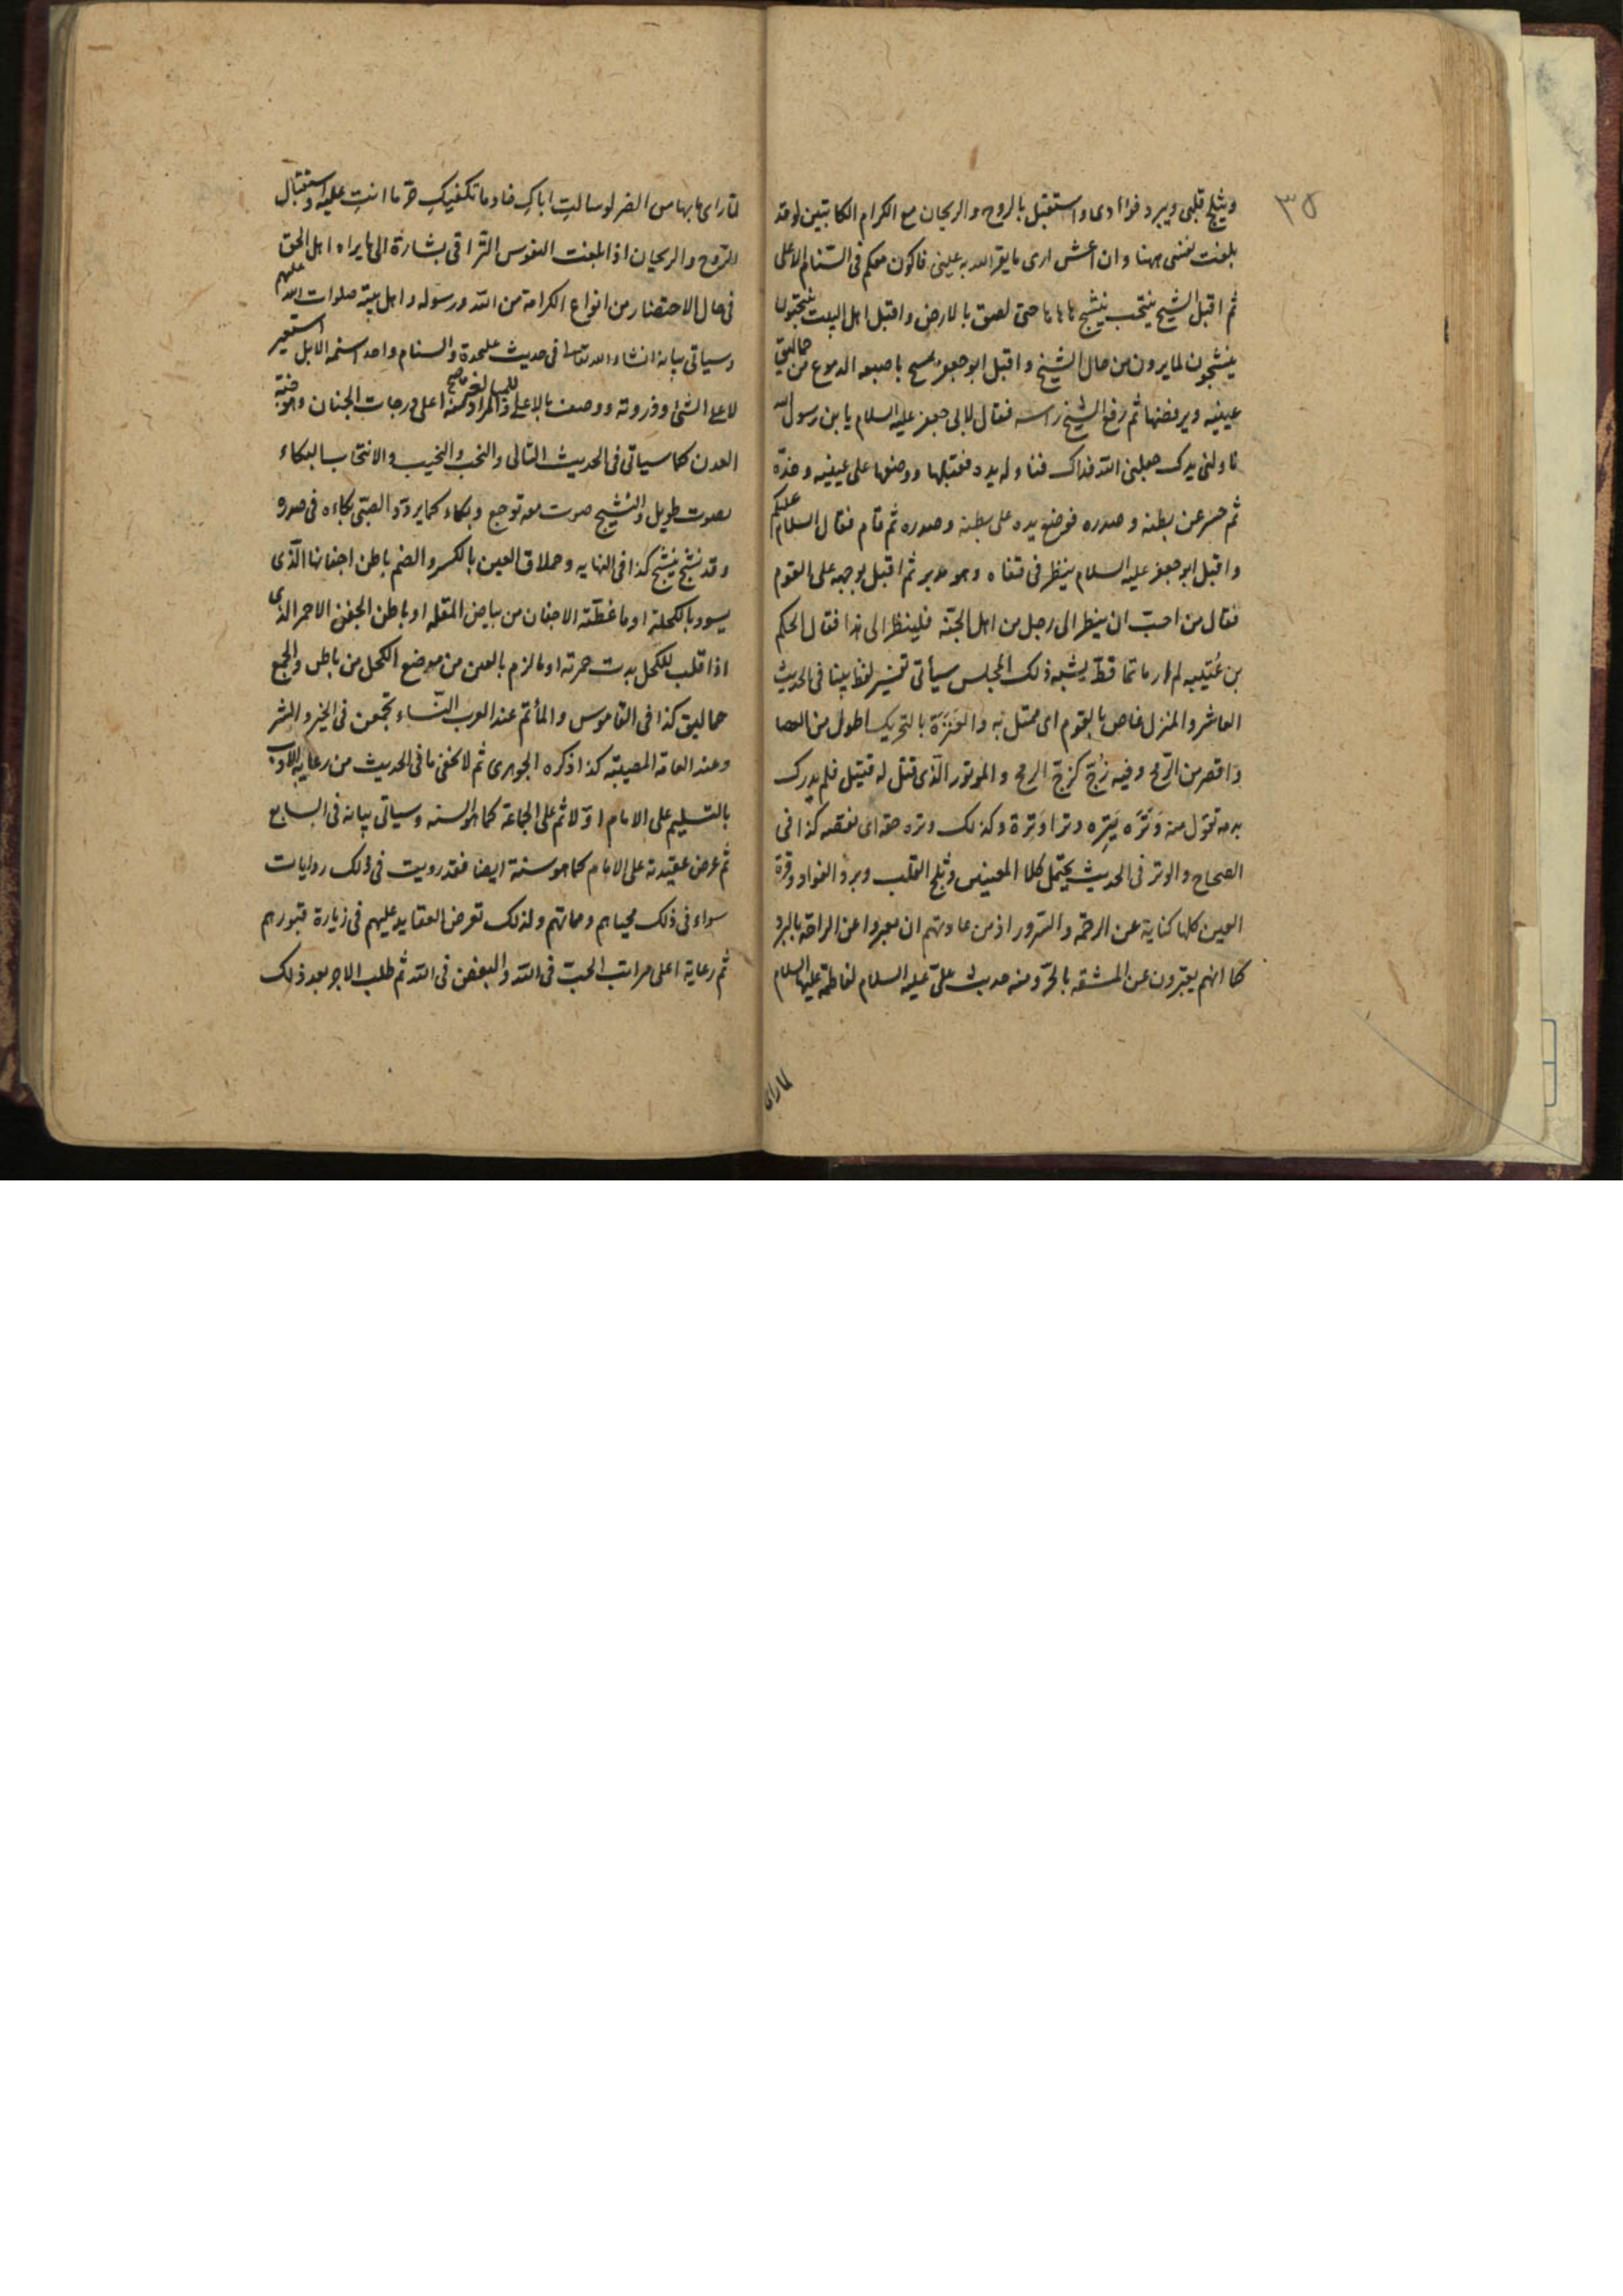 ٣٥
ويثلج قلبى ويبرد فؤادى واستقبل بالروح والريحان مع الكرام الكاتبين لو قد
بلغت نفسى ههنا وان اعش ارى ما يقر الله به عينى فاكون معكم فى السنام الاعلى
ثم اقبل الشيخ ينتحب ينشج ها ها ها حتى لصق بالارض واقبل اهل البيت ينتحبون
ينشجون لما يرون من حال الشيخ واقبل ابو جعفر يمسح باصبعه الدموع من حماليق
عينيه وينفضها ثم رفع الشيخ راسه فقال لابى جعفر عليه السلام يا بن رسول الله
ناولنى يدك جعلنى الله فداك فناوله يده فقبلها ووضعها على عينيه وخده
ثم حسر عن بطنه وصدره فوضع يده على بطنه وصدره ثم قام فقال السلام عليكم
واقبل ابو جعفر عليه السلام ينظر فى قفاه وهو مدبر ثم اقبل بوجهه على القوم
فقال من احب ان ينظر الى رجل من اهل الجنة فلينظر الى هذا فقال الحكم
بن عُتيبه لم ار ماتما قط يشبه ذلك المجلس سيأتى تفسير لفظ بينا فى الحديث
العاشر والمنزل غاص بالقوم اى ممتل به والعَنَزَة بالتحريك اطول من العصا
واقصر من الرمح وفيه زُجّ كزجّ الرمح والموتور الذى قتل له قتيل فلم يدرك
بدمه تقول منه وَتَرَه يَتِرِه وترا وَتِرة وكذلك وتره حقه اى نقصه كذا فى
الصحاح والوتر فى الحديث يحتمل كلا المعنيين وثلج القلب وبرد الفواد وقرة
العين كلها كناية عن الرحمة والسرور اذ من عادتهم ان يعبروا عن الراحة بالبرد
كما انهم يعبرون عن المشقه بالحرّ ومنه حديث علىّ عليه السلام لفاطمة عليها السلام
لما راى
لمّا راى ما بها من الضر لو سالتِ اباكِ خادما تكفيكِ حرّ ما انتِ عليه واستقبال
الروح والريحان اذا بلغت النفوس التراقى بشارة الى ما يراه اهل الحق
فى حال الاحتضار من انواع الكرامة من الله ورسوله واهل بيته صلوات الله عليهم
وسياتى بيانه انشاء الله تعالى فى حديث عليحدة والسنام واحد اسنمه الابل استعير
لاعلى الشئ وذروته ووصف بالاعلى للمبالغة والمراد منه اعلى درجات الجنان وهو جنة
العدن كما سياتى فى الحديث التالى والنحب والنحيب والانتحاب البكاء
بصوت طويل والنشيج صوت معه توجع وبكاء كما يردد الصبى بكاءه فى صدره
وقد نشج ينشج كذا فى النهايه وحملاق العين بالكسر والضم باطن اجفانها الّذى
يسود بالكحلة او ما غطّته الاجفان من بياض المقله او باطن الجفن الاحمر الذى
اذا قلب للكحل بدت حمرته او ما لزم بالعين من موضع الكحل من باطن والجمع
حماليق كذا فى القاموس والمأتم عند العرب النّساء تجتمعن فى الخير والشر
وعند العامة المصيبة كذا ذكره الجوهرى ثم لا يخفى ما فى الحديث من رعايه الاداب
بالتسليم على الامام اوّلا ثم على الجماعة كما هو السنه وسياتى بيانه فى السابع
ثم عرض عقيدته على الامام كما هو سنة ايضا فقد رويت فى ذلك روايات
سواء فى ذلك محياهم ومماتهم ولذلك تعرض العقايد عليهم فى زيارة قبورهم
ثم رعاية اعلى مراتب الحبّ فى الله والبغض فى الله ثم طلب الاجر بعد ذلك